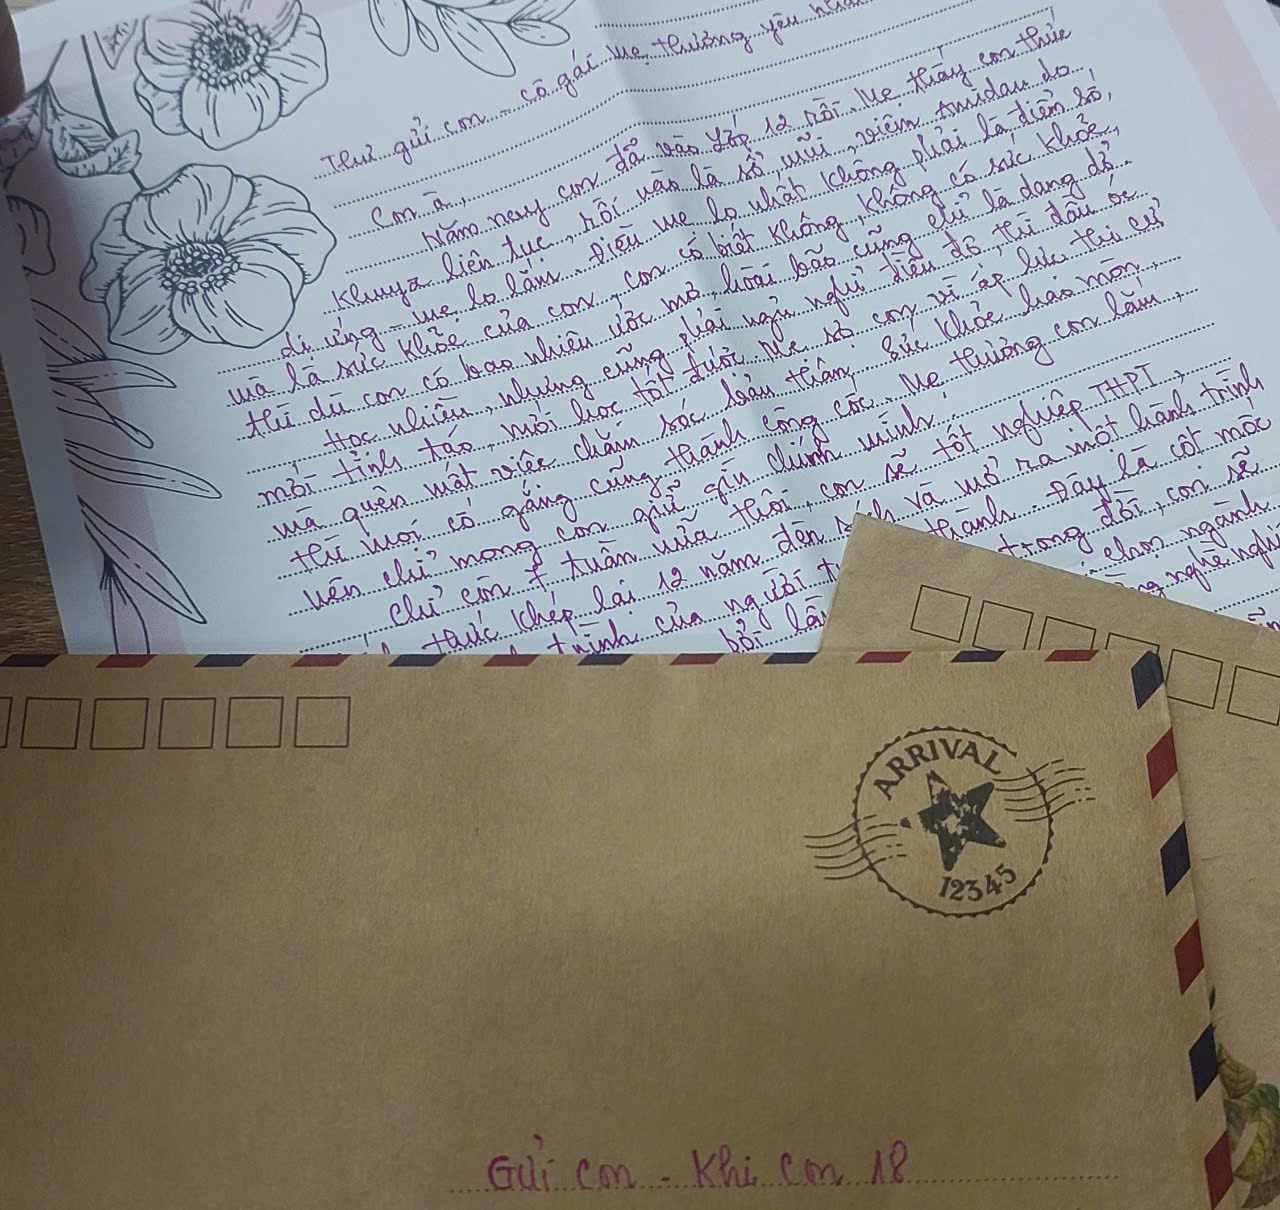 Thư gửi con - cô gái mẹ thương yêu nhất
Con à,
Năm nay con đã vào lớp 12 rồi. Mẹ thấy con thức
khuya liên tục, rồi nào là sổ mũi, viêm amidan do
dị ứng - mẹ lo lắm. Điều mẹ lo nhất không phải là điểm số,
mà là sức khỏe của con, con có biết không, không có sức khỏe,
thì dù con có bao nhiêu ước mơ hoài bão cũng chỉ là dang dở.
Học nhiều, nhưng cũng phải ngủ nghỉ điều độ, thì đầu óc
mới tỉnh táo, mới học tốt được. Mẹ sợ con vì áp lực thi cử
mà quên mất việc chăm sóc bản thân. Sức khỏe hao mòn,
thì mọi cố gắng cũng thành công cốc. Mẹ thương con lắm,
nên chỉ mong con giữ gìn chính mình.
Chỉ còn 7 tuần nữa thôi, con sẽ tốt nghiệp THPT,
thức khép lại 12 năm đèn sách và mở ra một hành trình
trình của người thành. Đây là cột mốc
bởi lần trong đời, con sẽ
chọn ngành
nghề
ARRIVAL
12345
Gửi con - Khi con 18